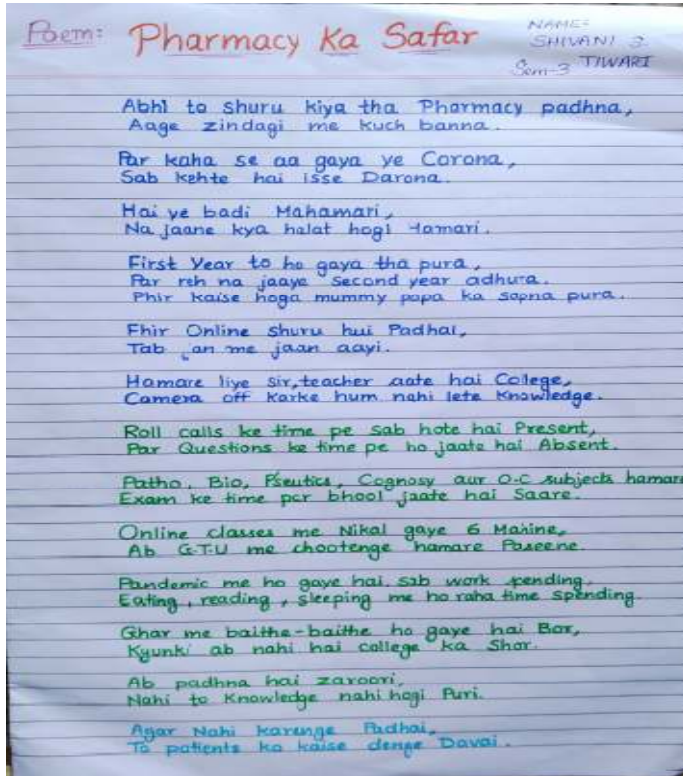 Poem: Pharmacy Ka Safar
NAME:-
SHIVANI S.
TIWARI
Sem-3
Abhi to shuru kiya tha Pharmacy padhna,
Aage zindagi me kuch banna.
Par kaha se aa gaya ye Corona,
Sab kehte hai isse Darona.
Hai ye badi Mahamari,
Na jaane kya halat hogi Hamari.
First Year to ho gaya tha pura,
Par reh na jaaye second year adhura.
Phir kaise hoga mummy papa ka sapna pura.
Fhir Online shuru hui Padhai,
Tab jan me jaan aayi.
Hamare liye sir, teacher aate hai College,
Camera off karke hum nahi lete Knowledge.
Roll calls ke time pe sab hote hai Present,
Par Questions ke time pe ho jaate hai Absent.
Patho, Bio, P'seutics, Cognosy aur O-C subjects hamare
Exam ke time par bhool jaate hai Saare.
Online classes me Nikal gaye 6 Mahine,
Ab G.T.U me chootenge hamare Paseene.
Pandemic me ho gaye hai sab work pending,
Eating, reading, sleeping me ho raha time spending.
Ghar me baithe-baithe ho gaye hai Bor,
Kyunki ab nahi hai college ka Shor.
Ab padhna hai zaroori,
Nahi to Knowledge nahi hogi Puri.
Agar Nahi karenge Padhai,
To patients ko kaise denge Davai.